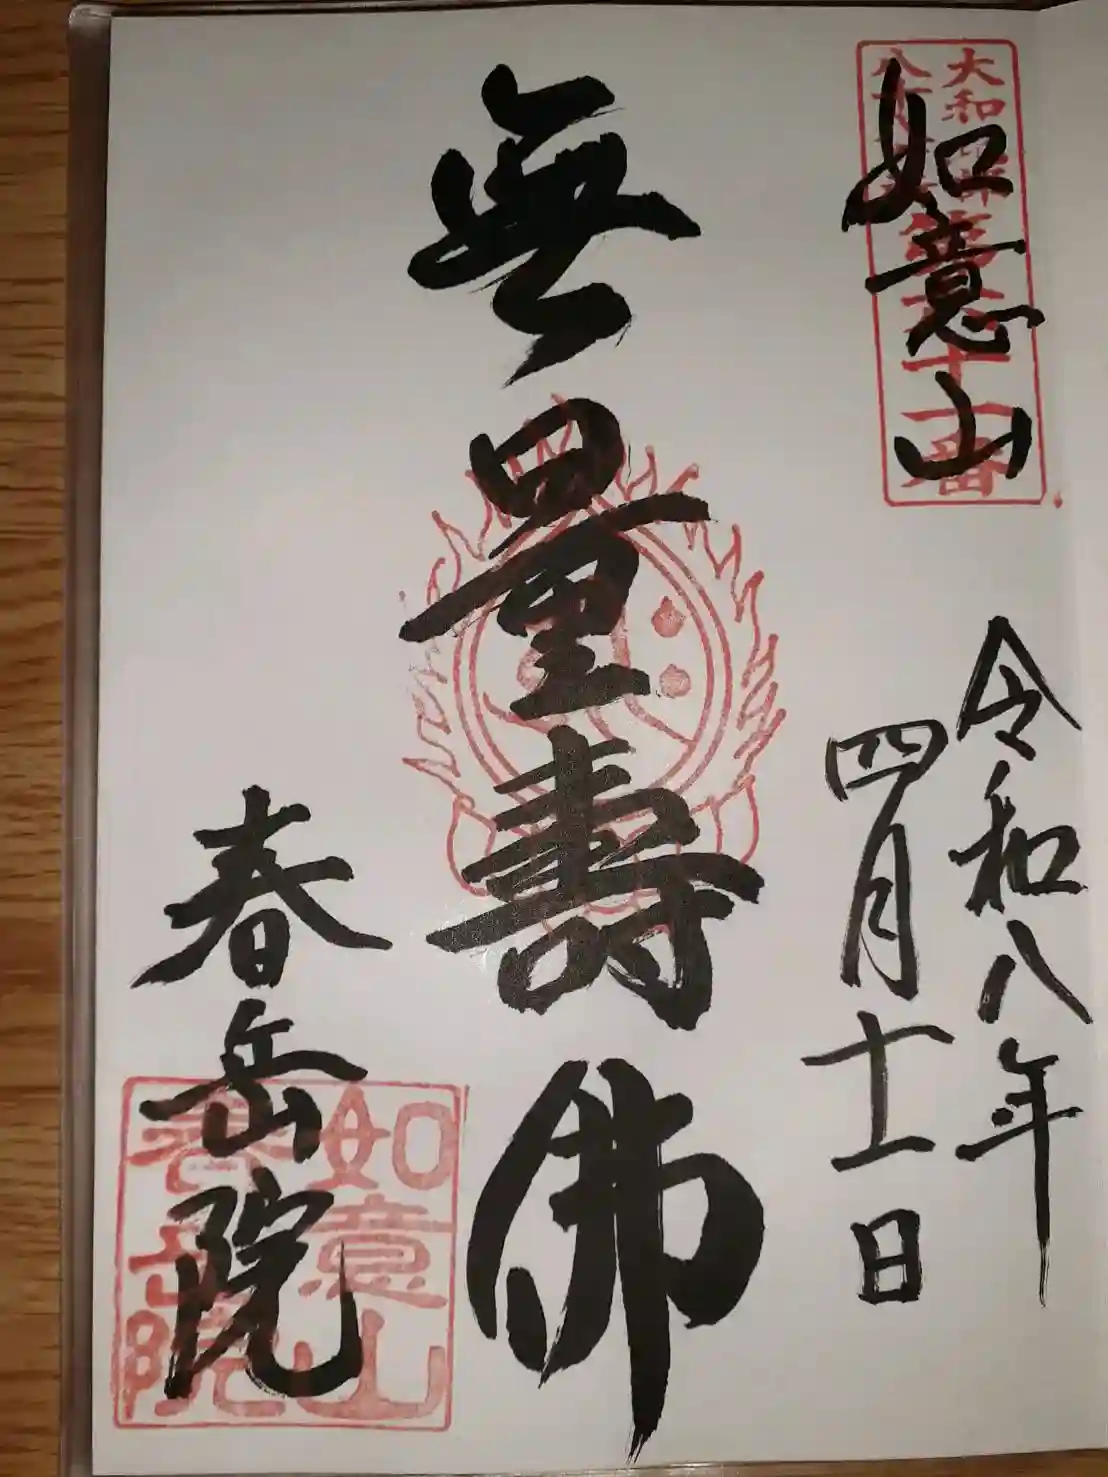 如意山
令和八年
四月十一日
無量壽佛
春岳院
大和
番
如意山
春岳院